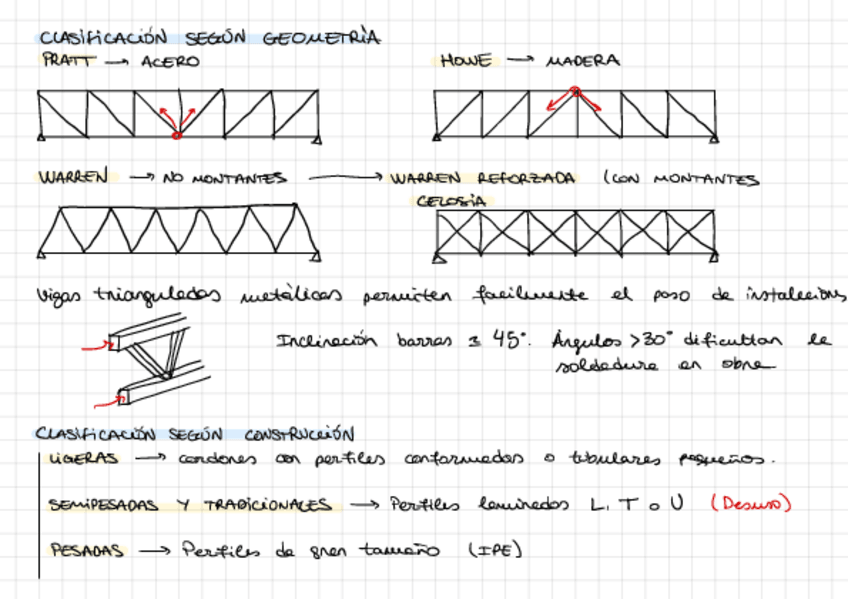 CLASIFICACIÓN SEGÚN GEOMETRÍA
PRATT → ACERO
HOWE → MADERA
WARREN → NO MONTANTES → WARREN REFORZADA (CON MONTANTES
CELOSÍA
Vigas trianguladas metálicas permiten facilmente el paso de instalaciones
Inclinación barras ± 45°. Ángulos >30° dificultan la
soldadura en obra
CLASIFICACIÓN SEGÚN CONSTRUCCIÓN
LIGERAS → cordones con perfiles conformados o tubulares pequeños.
SEMIPESADAS Y TRADICIONALES → Perfiles laminados L, T o U (Desuso)
PESADAS → Perfiles de gran tamaño (IPE)